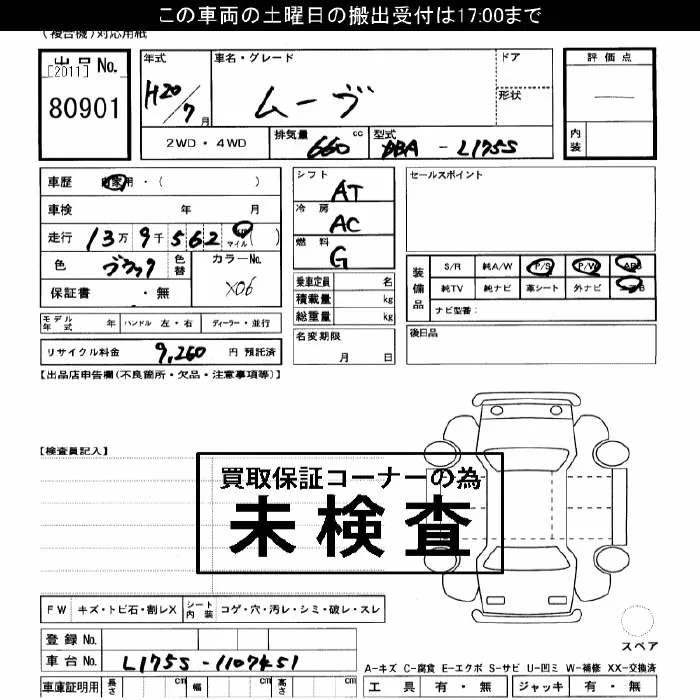 この車両の土曜日の搬出受付は17:00まで
(複合機)対応用紙
出品 No.
[2011]
80901
年式 車名・グレード ドア
H20/7月 ムーヴ 形状
2WD・4WD 排気量 660 cc 型式 DBA - L175S
評価点
内装
車歴 自家用・( )
車検 年 月
走行 13万9千562 km マイル ( )
色 ブラック 色替 カラーNo. X06
保証書 ・無
モデル年式 年 ハンドル 左・右 ディーラー・並行
リサイクル料金 9,260 円 預託済
シフト AT
冷房 AC
燃料 G
乗車定員 名
積載量 kg
総重量 kg
名変期限
月 日
セールスポイント
装備品 S/R 純A/W P/S P/W ABS
純TV 純ナビ 革シート 外ナビ エアB
ナビ型番:
後日品
【出品店申告欄(不良箇所・欠品・注意事項等)】
【検査員記入】
買取保証コーナーの為
未検査
FW キズ・トビ石・割レX シート内装 コゲ・穴・汚レ・シミ・破レ・スレ
登録 No.
車台 No. L175S-1107451
車庫証明用 長さ cm 幅 cm 高さ cm
スペア
A-キズ C-腐食 E-エクボ S-サビ U-凹ミ W-補修 XX-交換済
工具 有・無 ジャッキ 有・無